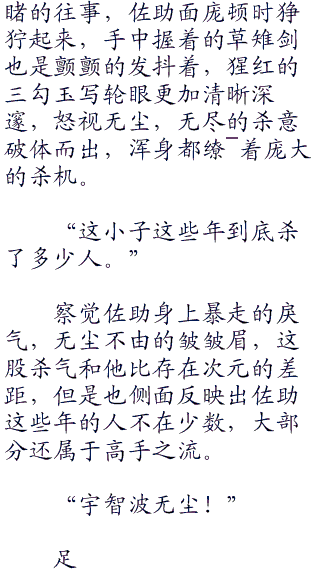 睹的往事，佐助面庞顿时狰
狞起来，手中握着的草雉剑
也是颤颤的发抖着，猩红的
三勾玉写轮眼更加清晰深
邃，怒视无尘，无尽的杀意
破体而出，浑身都缭¯着庞大
的杀机。
“这小子这些年到底杀
了多少人。”
察觉佐助身上暴走的戾
气，无尘不由的皱皱眉，这
股杀气和他比存在次元的差
距，但是也侧面反映出佐助
这些年的人不在少数，大部
分还属于高手之流。
“宇智波无尘！”
足